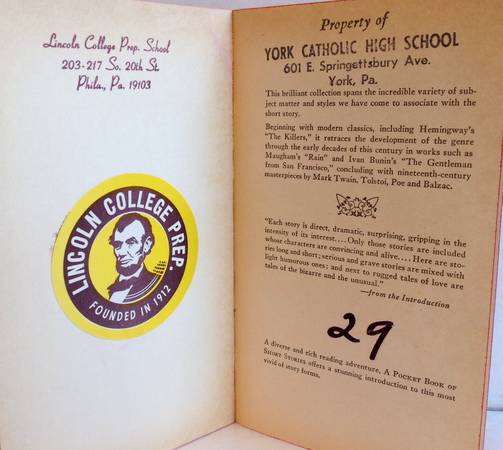 Lincoln College Prep. School
203-217 So. 20th St.
Phila., Pa. 19103
LINCOLN COLLEGE PREP.
FOUNDED IN 1912
Property of
YORK CATHOLIC HIGH SCHOOL
601 E. Springettsbury Ave.
York, Pa.
This brilliant collection spans the incredible variety of sub-
ject matter and styles we have come to associate with the
short story.
Beginning with modern classics, including Hemingway's
"The Killers," it retraces the development of the genre
through the early decades of this century in works such as
Maugham's "Rain" and Ivan Bunin's "The Gentleman
from San Francisco," concluding with nineteenth-century
masterpieces by Mark Twain, Tolstoi, Poe and Balzac.
"Each story is direct, dramatic, surprising, gripping in the
intensity of its interest....Only those stories are included
whose characters are convincing and alive....Here are sto-
ries long and short; serious and grave stories are mixed with
light humorous ones; and next to rugged tales of love are
tales of the bizarre and the unusual."
—from the Introduction
29
A diverse and rich reading adventure, A POCKET BOOK OF
SHORT STORIES offers a stunning introduction to this most
vivid of story forms.